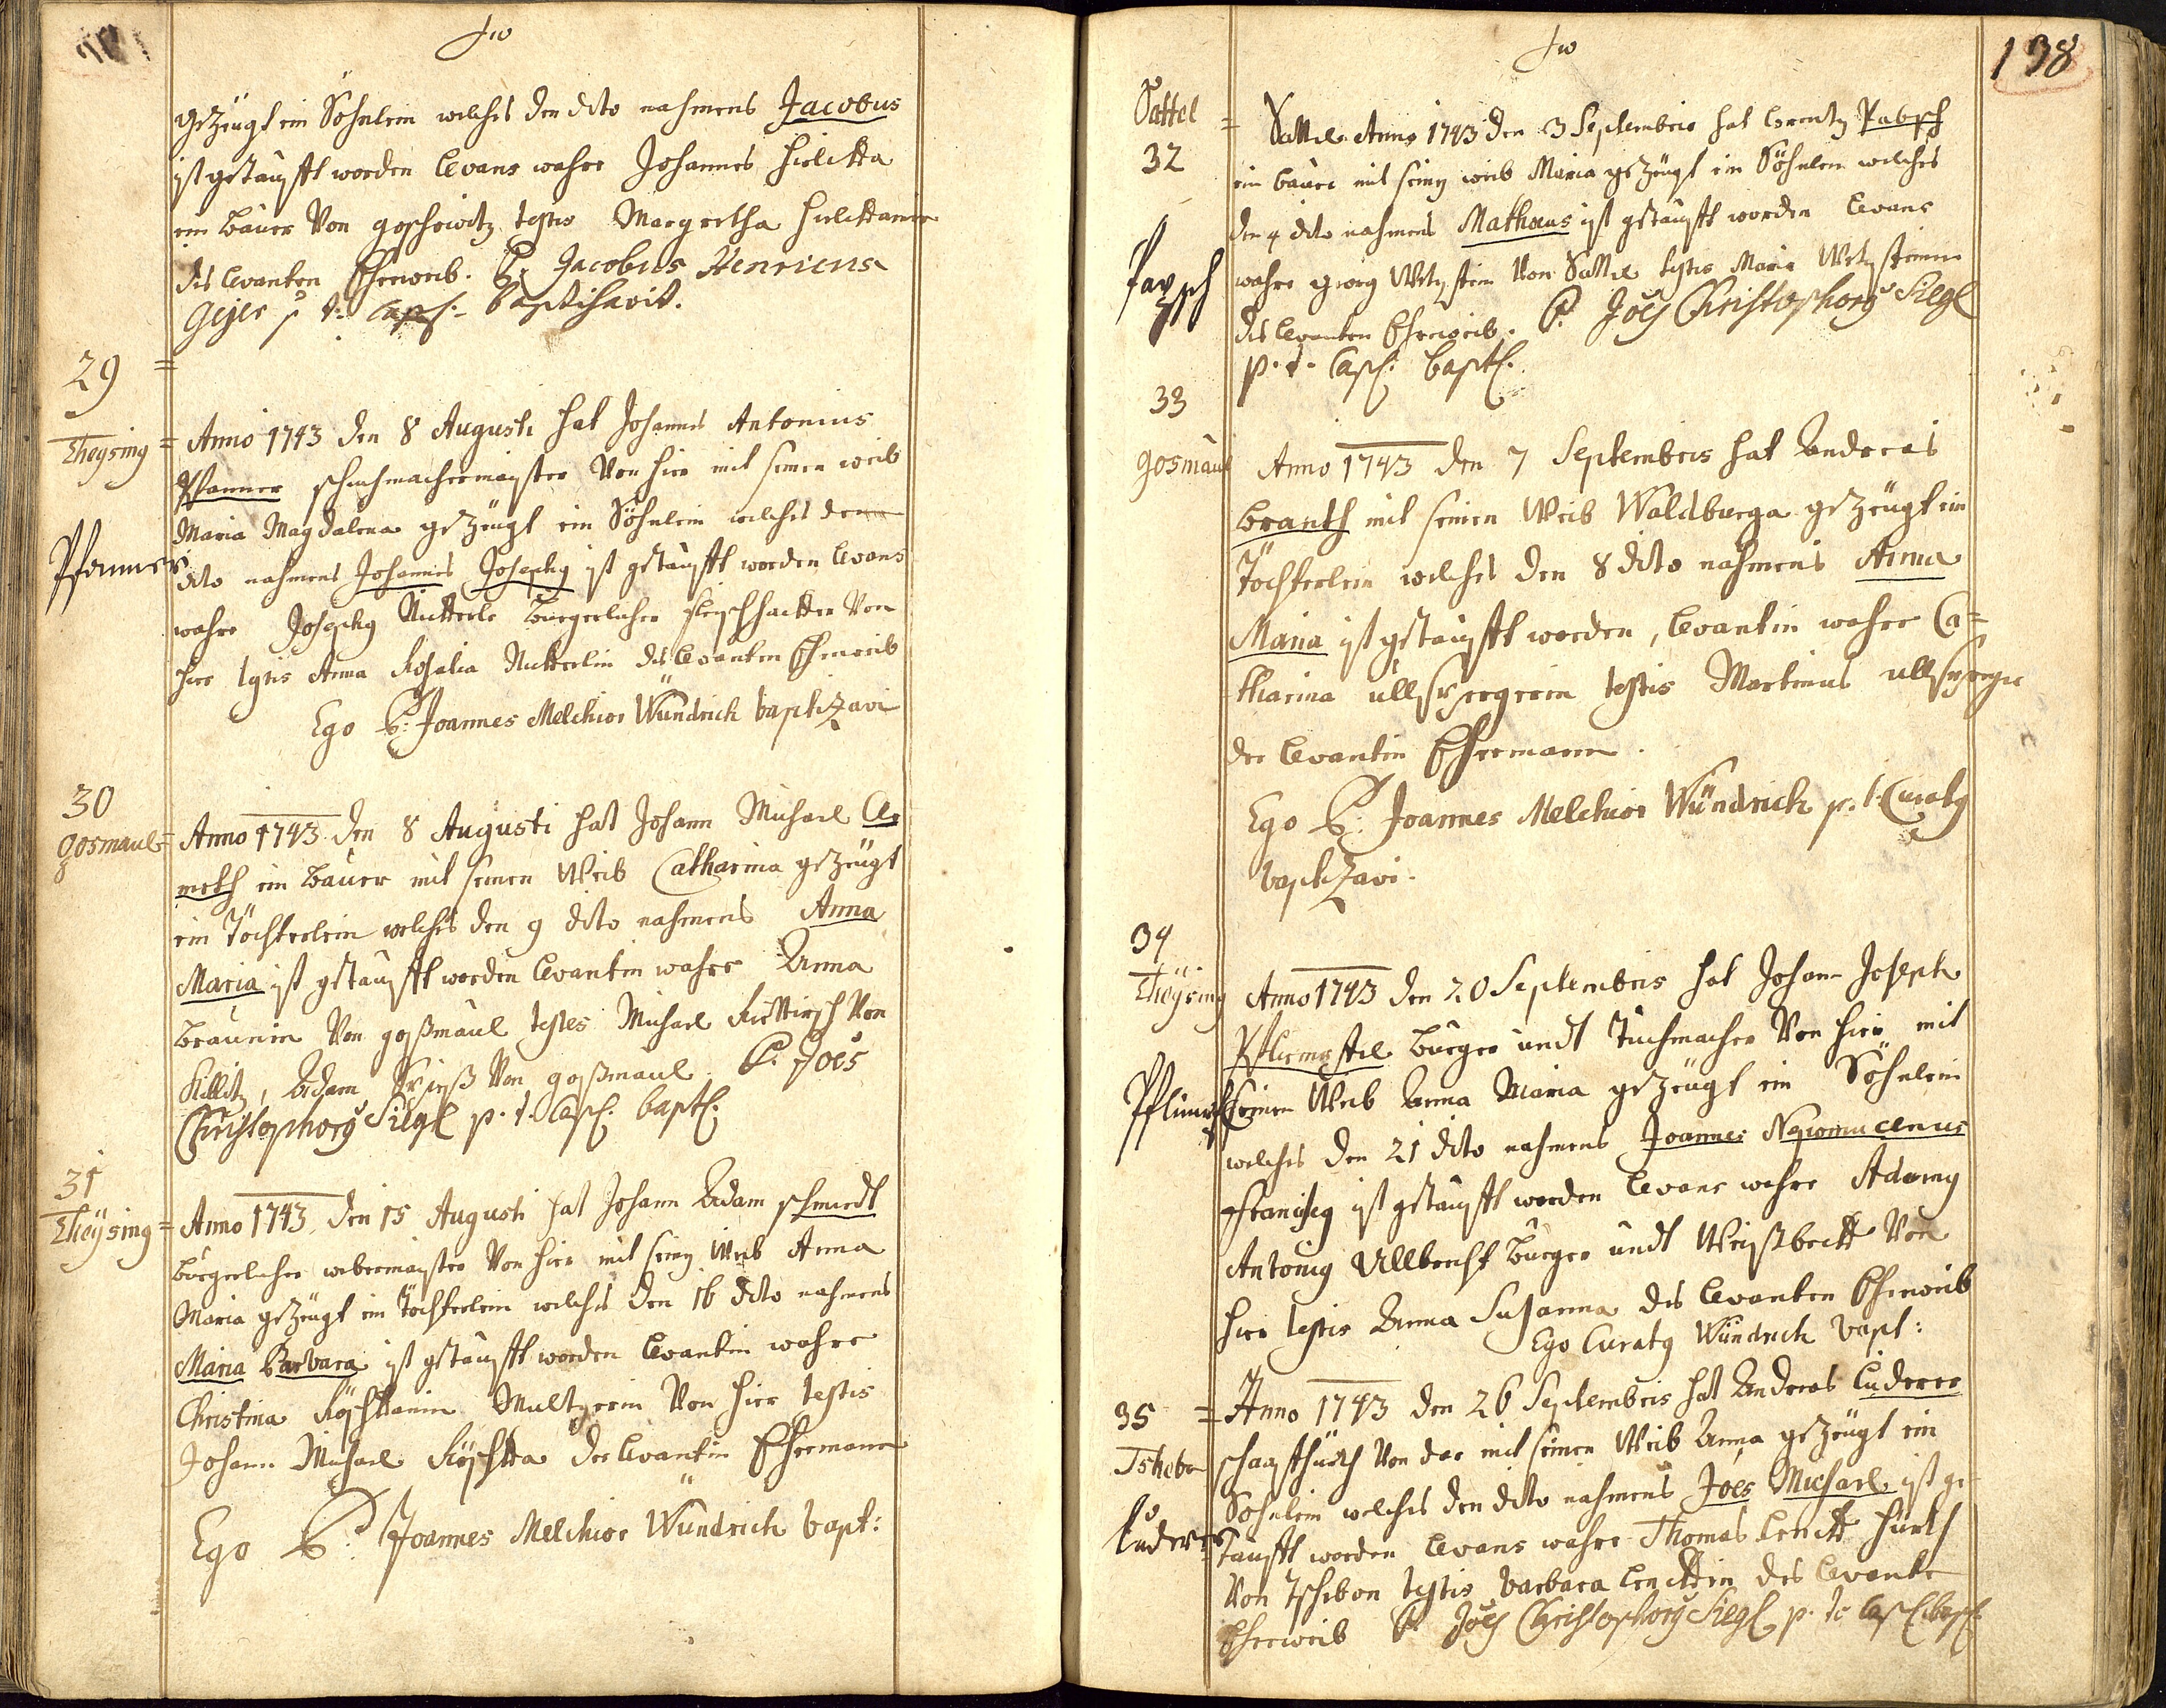 gezeugt ein Söhnlein welches den dito nahmens Jacobus
ist getaufft worden Levans wahre Johannes
ein Bauer von goschowitz testis Margretha
des Levanten Eheweib. P. Jacobus Henricus
Gejer p. t. Capl: baptisavit.
29
Theysing = Anno 1743 den 8 Augusti hat Johannes Antonius
Pfanner schuhmachermaister von hier mit seinen weib
Maria Magdalena gezeugt ein Söhnlein welches den
Pfanner
dito nahmens Johannes Josephus ist getaufft worden Levans
wahre Josephus Nitterle Burgerlicher fleischhacker von
hier testis Anna Rosalia Nitterlin des Levanten Eheweib
Ego P: Joannes Melchior Wündrich baptizavi
30
gosmaul = Anno 1743 den 8 Augusti hat Johann Michael Cle
meth ein Bauer mit seinen Weib Catharina gezeugt
ein Töchterlein welches den 9 dito nahmens Anna
Maria ist getaufft worden Levantin wahre Anna
Braunin von goßmaul testes Michael von
Killitz, Adam von goßmaul. P. Joes
Christophorus Siegl p. t. Capl: baptl:
31
Theÿsing = Anno 1743 den 15 Augusti hat Johann Adam schmidt
burgerlicher webermaister von hier mit seinen Weib Anna
Maria gezeugt ein Töchterlein welches den 16 dito nahmens
Maria Barbara ist getaufft worden Levantin wahre
Christina Multzerin von hier testis
Johann Michael der Levantin Ehemann
Ego P: Joannes Melchior Wündrich bapt:
138
Sattel = Sattel Anno 1743 den 3 Septembris hat Lorentz Pabsch
32
ein bauer mit seinen weib Maria gezeugt ein Söhnlein welches
den 4 dito nahmens Mathæus ist getaufft worden Levans
Papsch
wahre georg Wetzstein von Sattel testis Maria Wetzsteinin
des Levanten Eheweib. P. Joes Christophorus Siegl
p. t. Capl: baptl:
33
gosmaul Anno 1743 den 7 Septembris hat Andreas
Branth mit seinen Weib Waldburga gezeugt ein
Töchterlein welches den 8 dito nahmens Anna
Maria ist getaufft worden, Levantin wahre Ca=
tharina ullspergerin testis Martinus ullsperger
der Levantin Ehemann.
Ego P: Joannes Melchior Wündrich p. t. Curatus
baptizavi.
34
Theÿsing Anno 1743 den 20 Septembris hat Johann Joseph
Burger undt Tuchmacher von hier mit
seinen Weib Anna Maria gezeugt ein Söhnlein
welches den 21 dito nahmens Joannes Nepomucenus
ist getaufft worden Levans wahre Adamus
Antonius Ullbricht Burger undt Weißbeckh von
hier testis Anna Susanna des Levanten Eheweib
Ego Curatus Wündrich bapt:
35 = Anno 1743 den 26 Septembris hat Andreas Luderer
Tshebon schaaffhürth von dar mit seinen Weib Anna gezeugt ein
Söhnlein welches den dito nahmens Joes Michael ist ge
Luderer
taufft worden Levans wahre Thomas Lenckh hürth
von Tschebon testis barbara Lenckhin des Levante
Eheweib P. Joes Christophorus Siegl p. t. Capl: bapl: